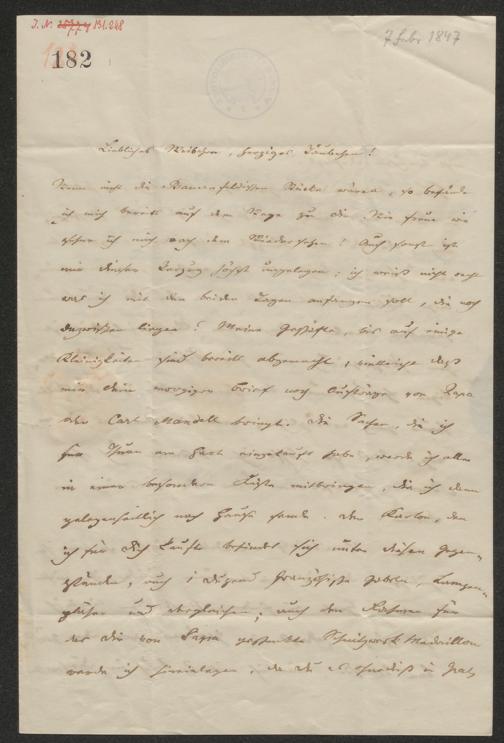 J. N. 131.248
182
7 Febr 1847
Liebliches Weibchen, herziges Täubchen!
Wenn nicht die Bauernfeldischen Stücke wären, so befände
ich mich bereits auf dem Wege zu Dir. Wie freue
ich mich nach dem Wiedersehen! Auch sonst ist
mir dieser höchst ungelegen; ich weiß nicht recht
was ich mit den beiden Tagen anfangen soll, die noch
dazwischen liegen! Meine Geschäfte, bis auf einige
Kleinigkeiten sind bereits abgemacht, vielleicht daß
mir Dein morgiger Brief noch Aufträge von Papa
oder Carl Mandell bringt. Die Sachen, die ich
für eingekauft habe, werde ich alle
in einer besondern Kiste mitbringen, die ich dann
gelegenheitlich nach Hause sende. Den Karton, den
ich für Dich kaufte befindet sich unter diesen Gegen-
ständen, auch 1 Dutzend französische Gabeln, Lampen-
gläser und dergleichen; auch den Rahmen für
das Dir von Papa geschenkte Schnitzwerk Medaillon
werde ich hineinlegen, da Du es ohnedieß in Gratz